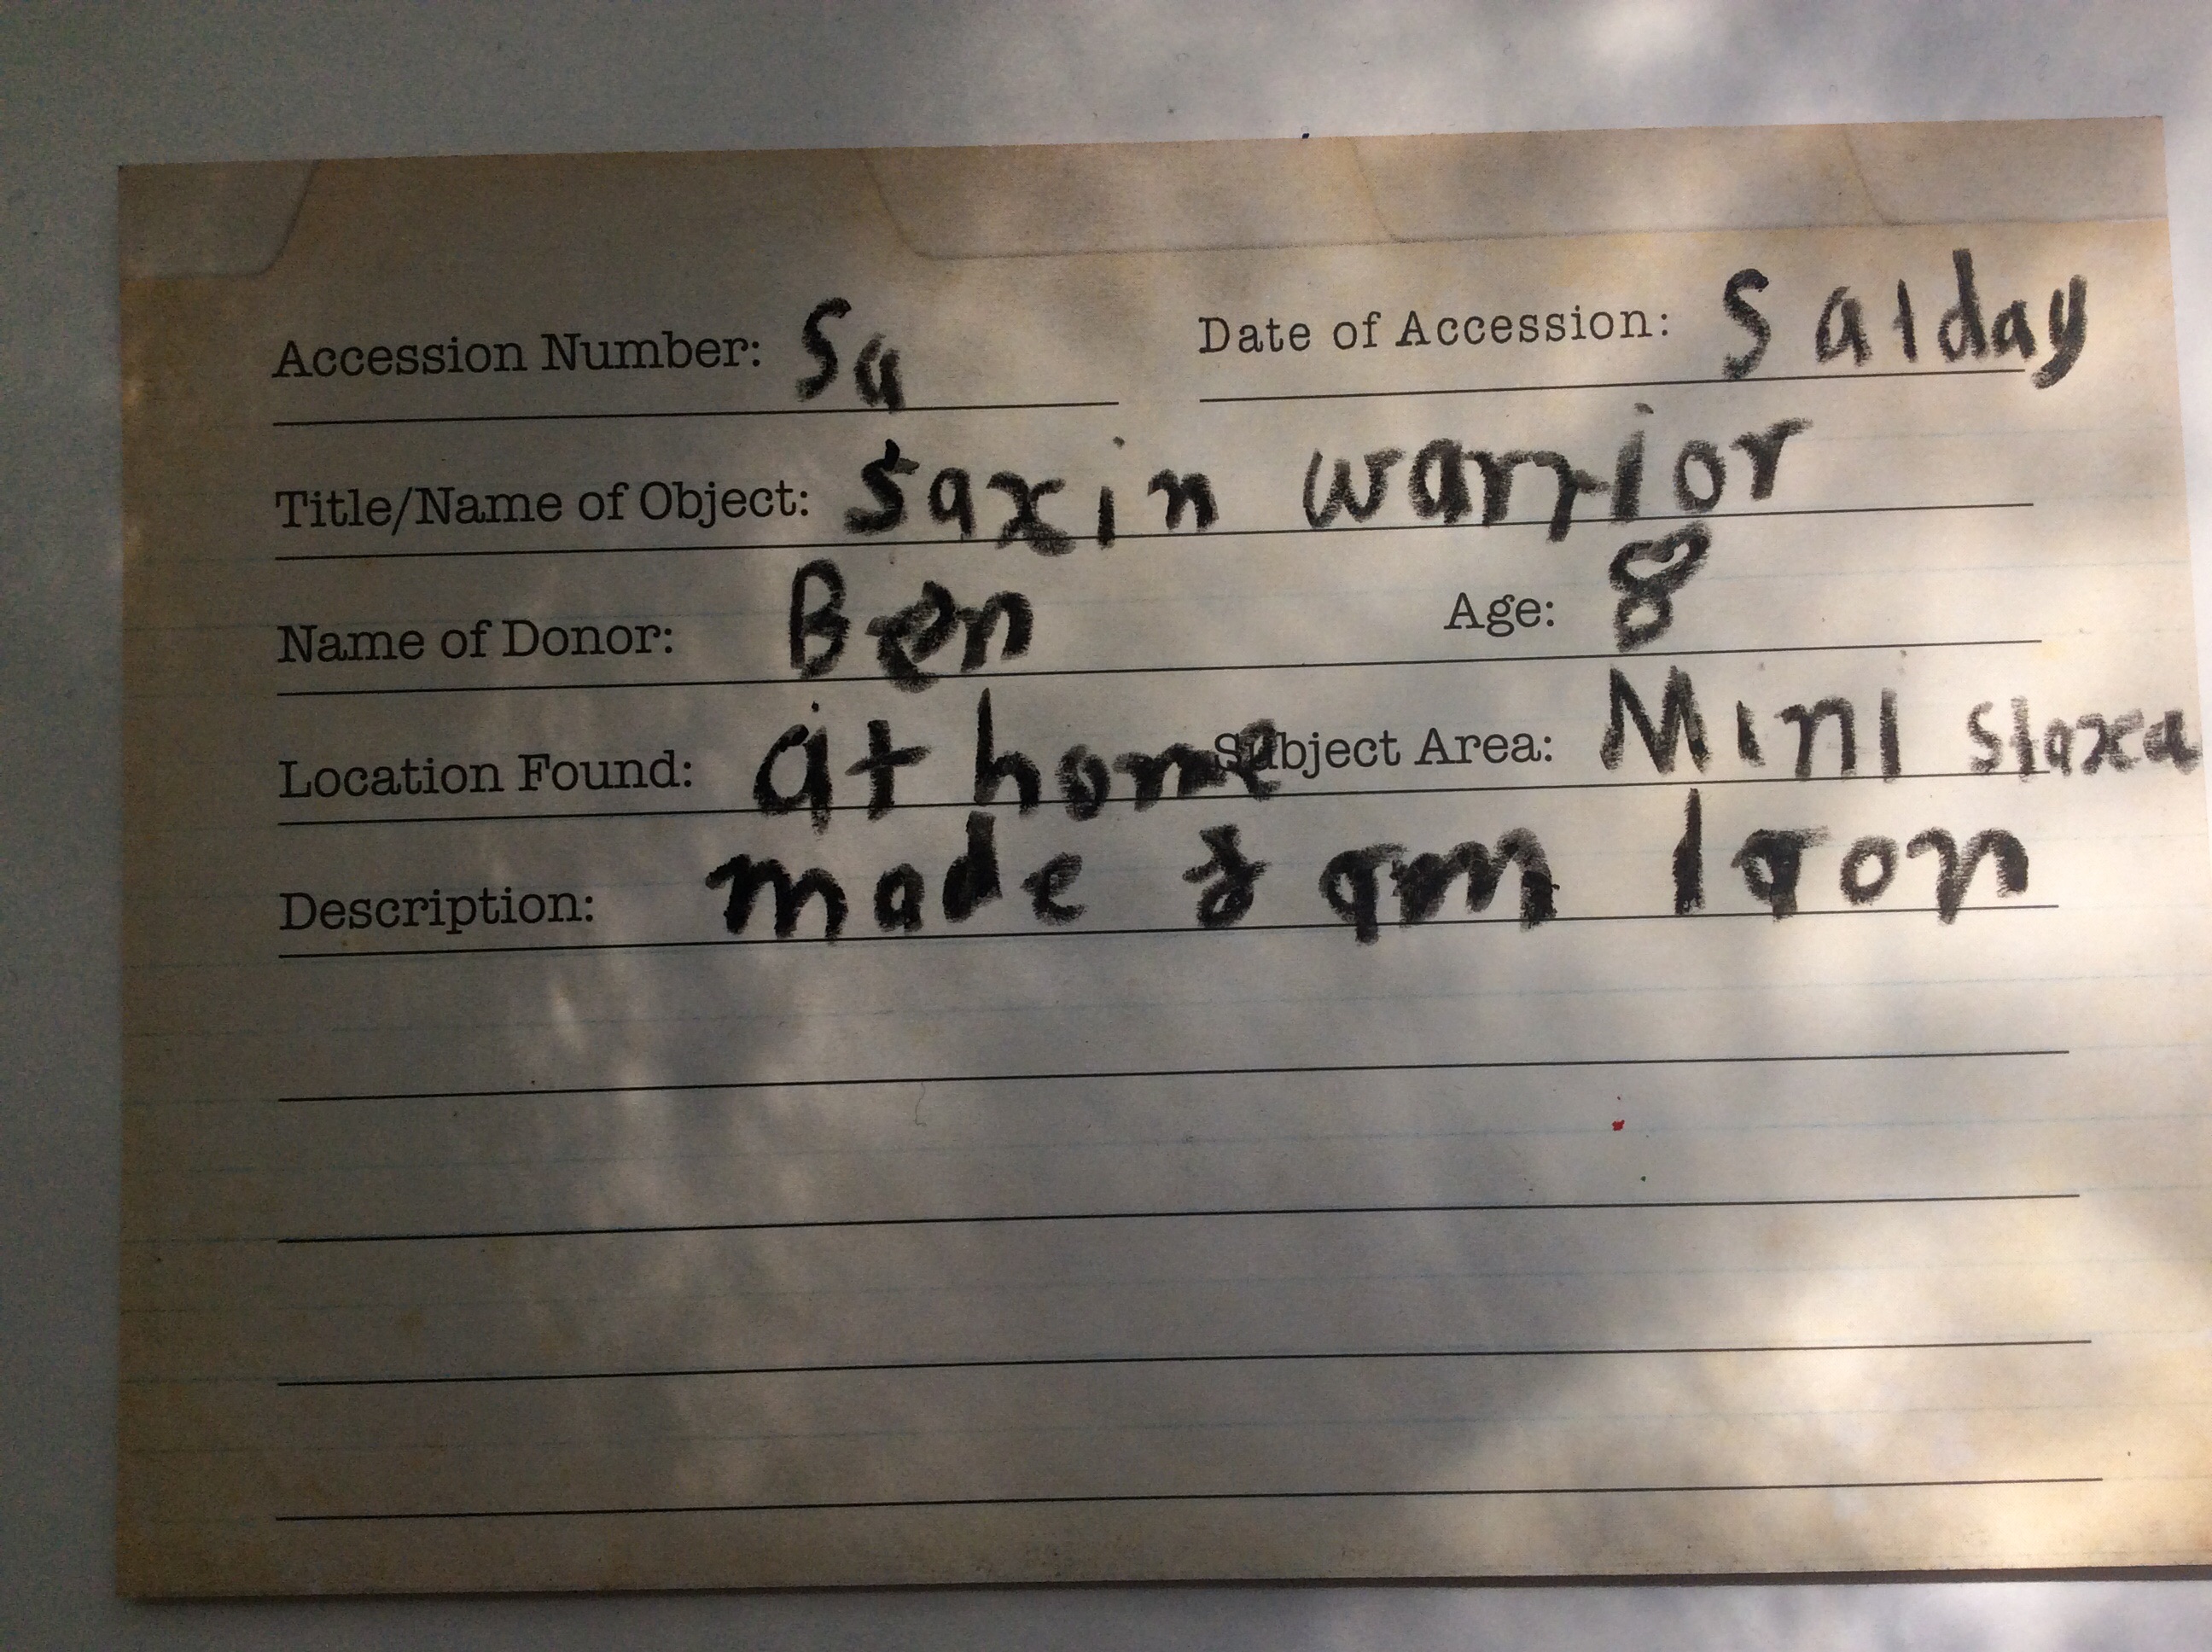 Accession Number: Sa Date of Accession: Salday
Title/Name of Object: saxin warrior
Name of Donor: Ben Age: 8
Location Found: at home Subject Area: Mini
Description: made Iron